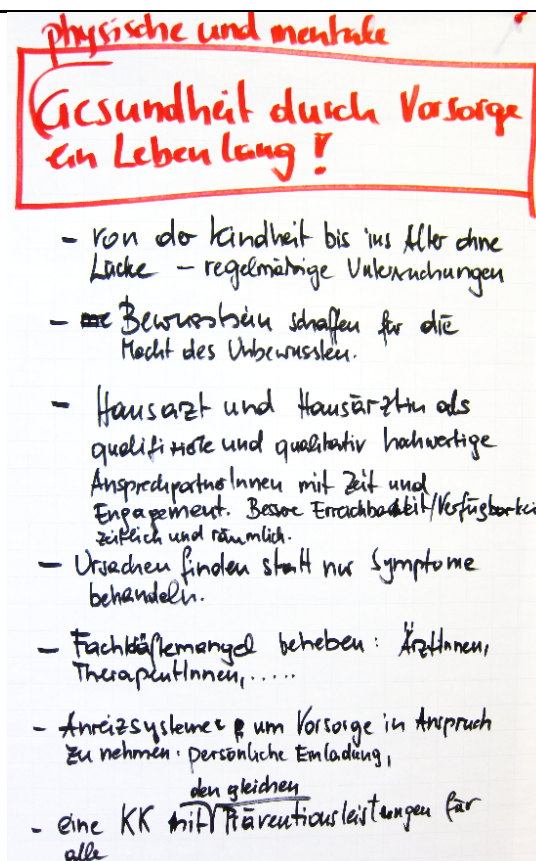 physische und mentale
Gesundheit durch Vorsorge
ein Leben lang !
- von der Kindheit bis ins Alter ohne
Lücke - regelmäßige Untersuchungen
- Bewusstsein schaffen für die
Macht des Unbewussten.
- Hausarzt und Hausärztin als
qualifizierte und qualitativ hochwertige
AnsprechpartnerInnen mit Zeit und
Engagement. Bessere Erreichbarkeit/Verfügbarkei
zeitlich und räumlich.
- Ursachen finden statt nur Symptome
behandeln.
- Fachkräftemangel beheben: ÄrztInnen,
TherapeutInnen, .....
- Anreizsysteme um Vorsorge in Anspruch
zu nehmen: persönliche Einladung,
den gleichen
- eine KK mit Präventionsleistungen für
alle